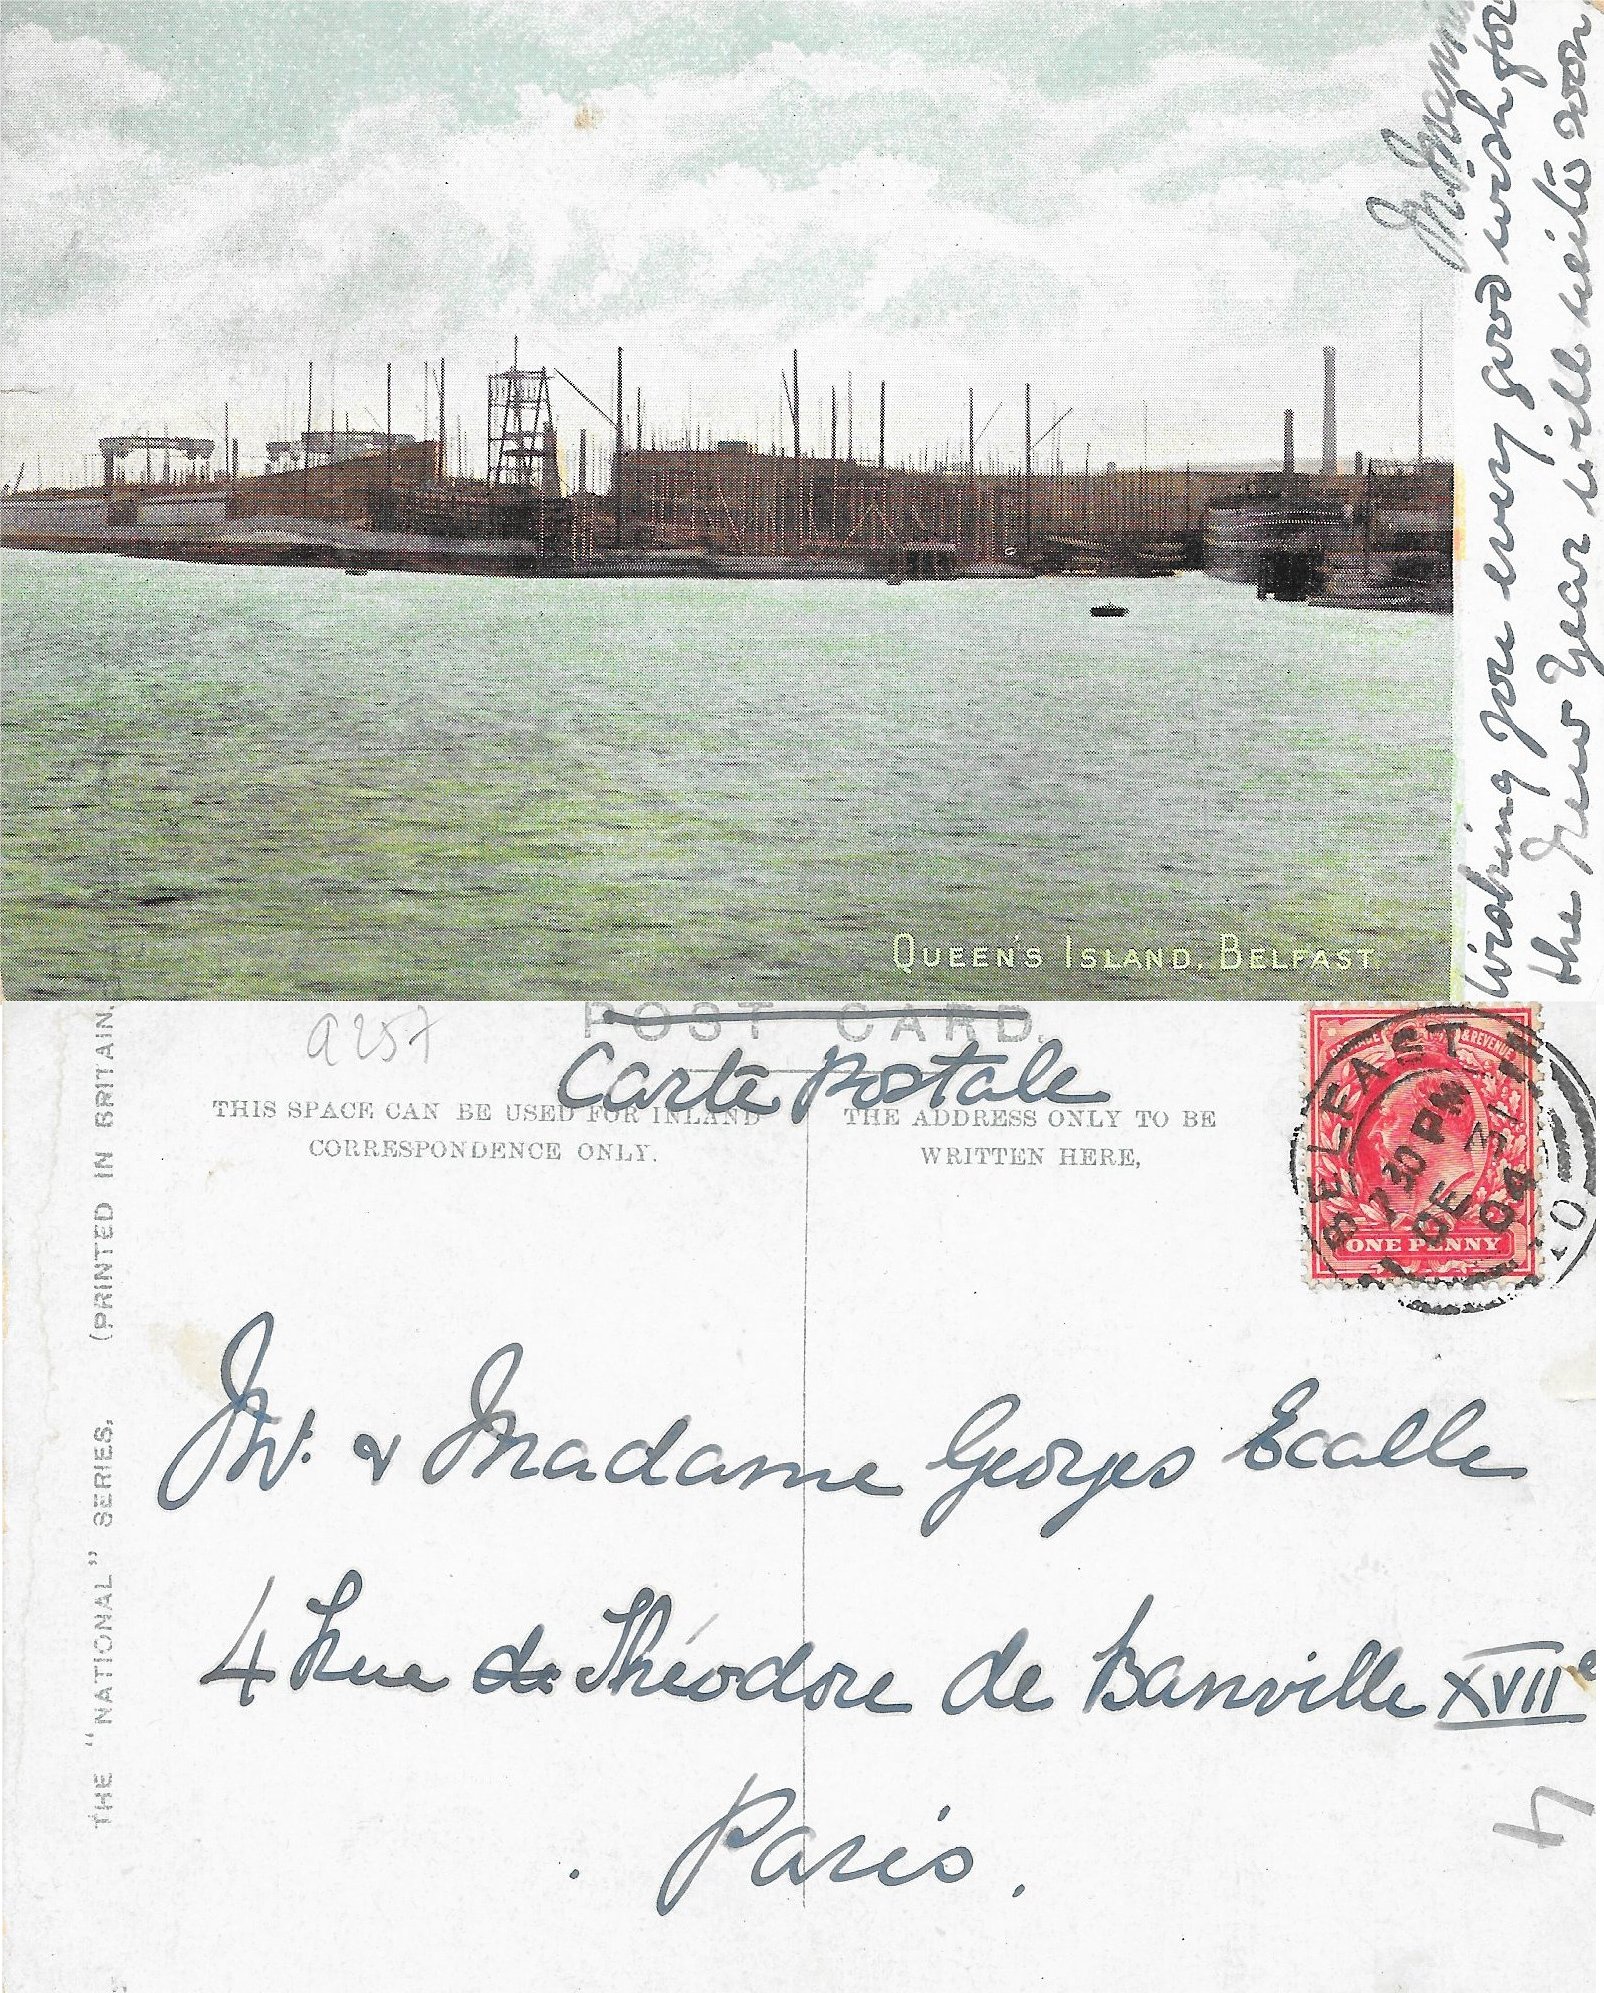 Wishing you every good wish for
the New Year will write soon
QUEEN'S ISLAND, BELFAST.
a257
POST CARD.
Carte Postale
THIS SPACE CAN BE USED FOR INLAND
CORRESPONDENCE ONLY.
THE ADDRESS ONLY TO BE
WRITTEN HERE,
POSTAGE & REVENUE
ONE PENNY
BELFAST
7 30 PM
DE 31
04
THE "NATIONAL" SERIES. (PRINTED IN BRITAIN.
Mr. & Madame Georges Ecalle
4 Rue de Théodore de Banville XVIIe
Paris.
4